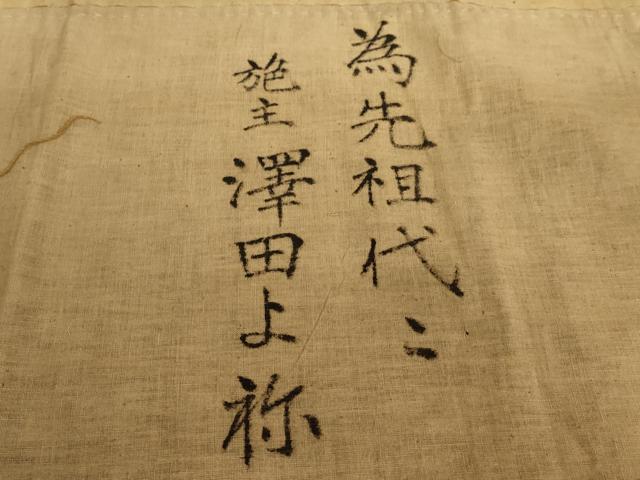 為先祖代〻
施主 澤田よ祢